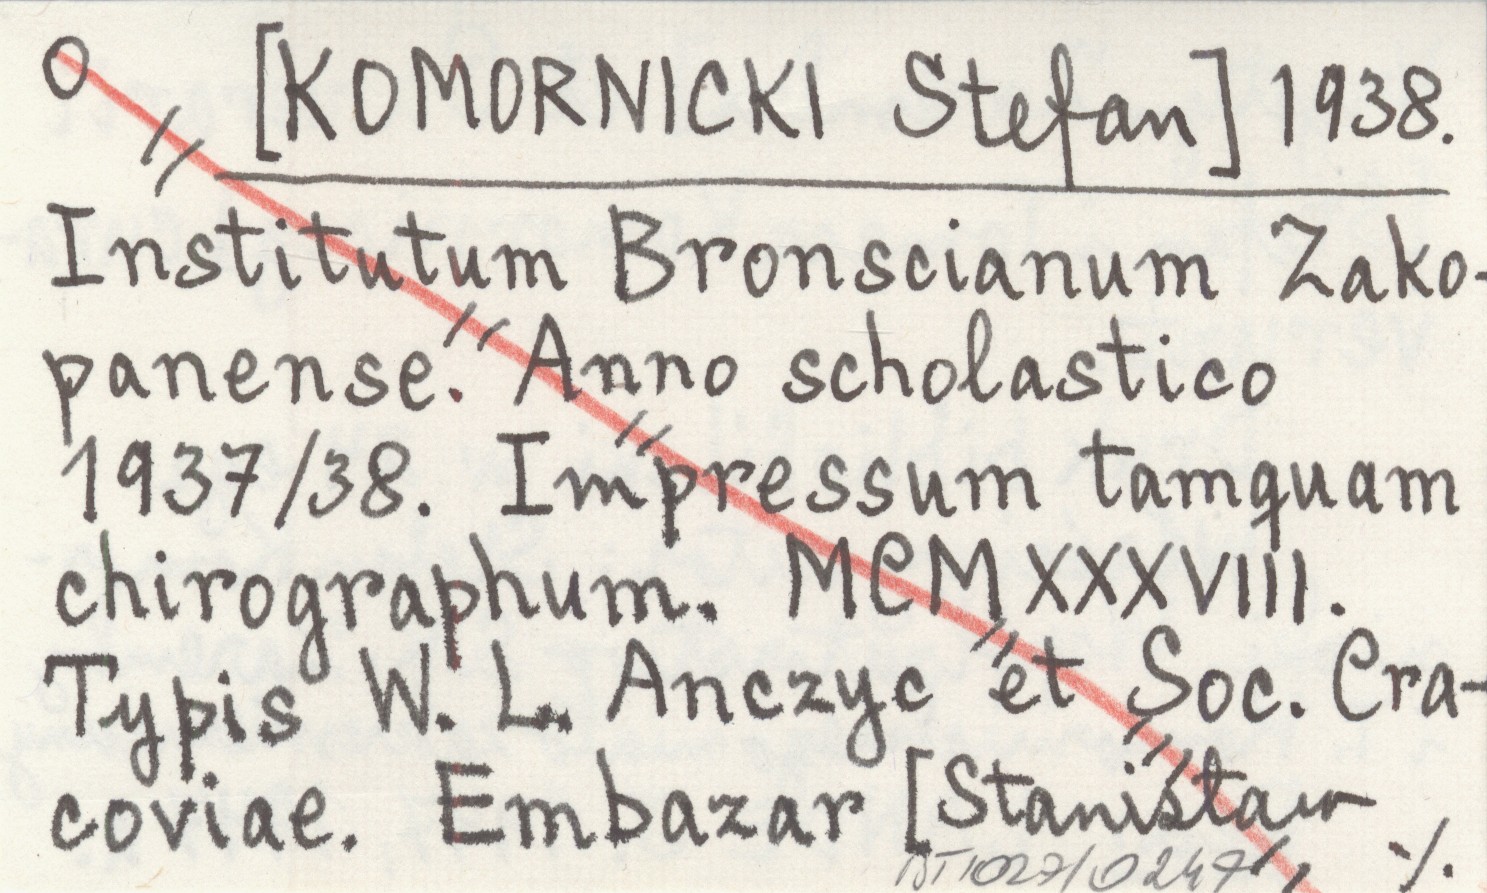 O [KOMORNICKI Stefan] 1938.
Institutum Bronscianum Zako-
panense. Anno scholastico
1937/38. Impressum tamquam
chirographum. MCMXXXVIII.
Typis W. L. Anczyc et Soc. Cra-
coviae. Embazar [Stanisław
./.